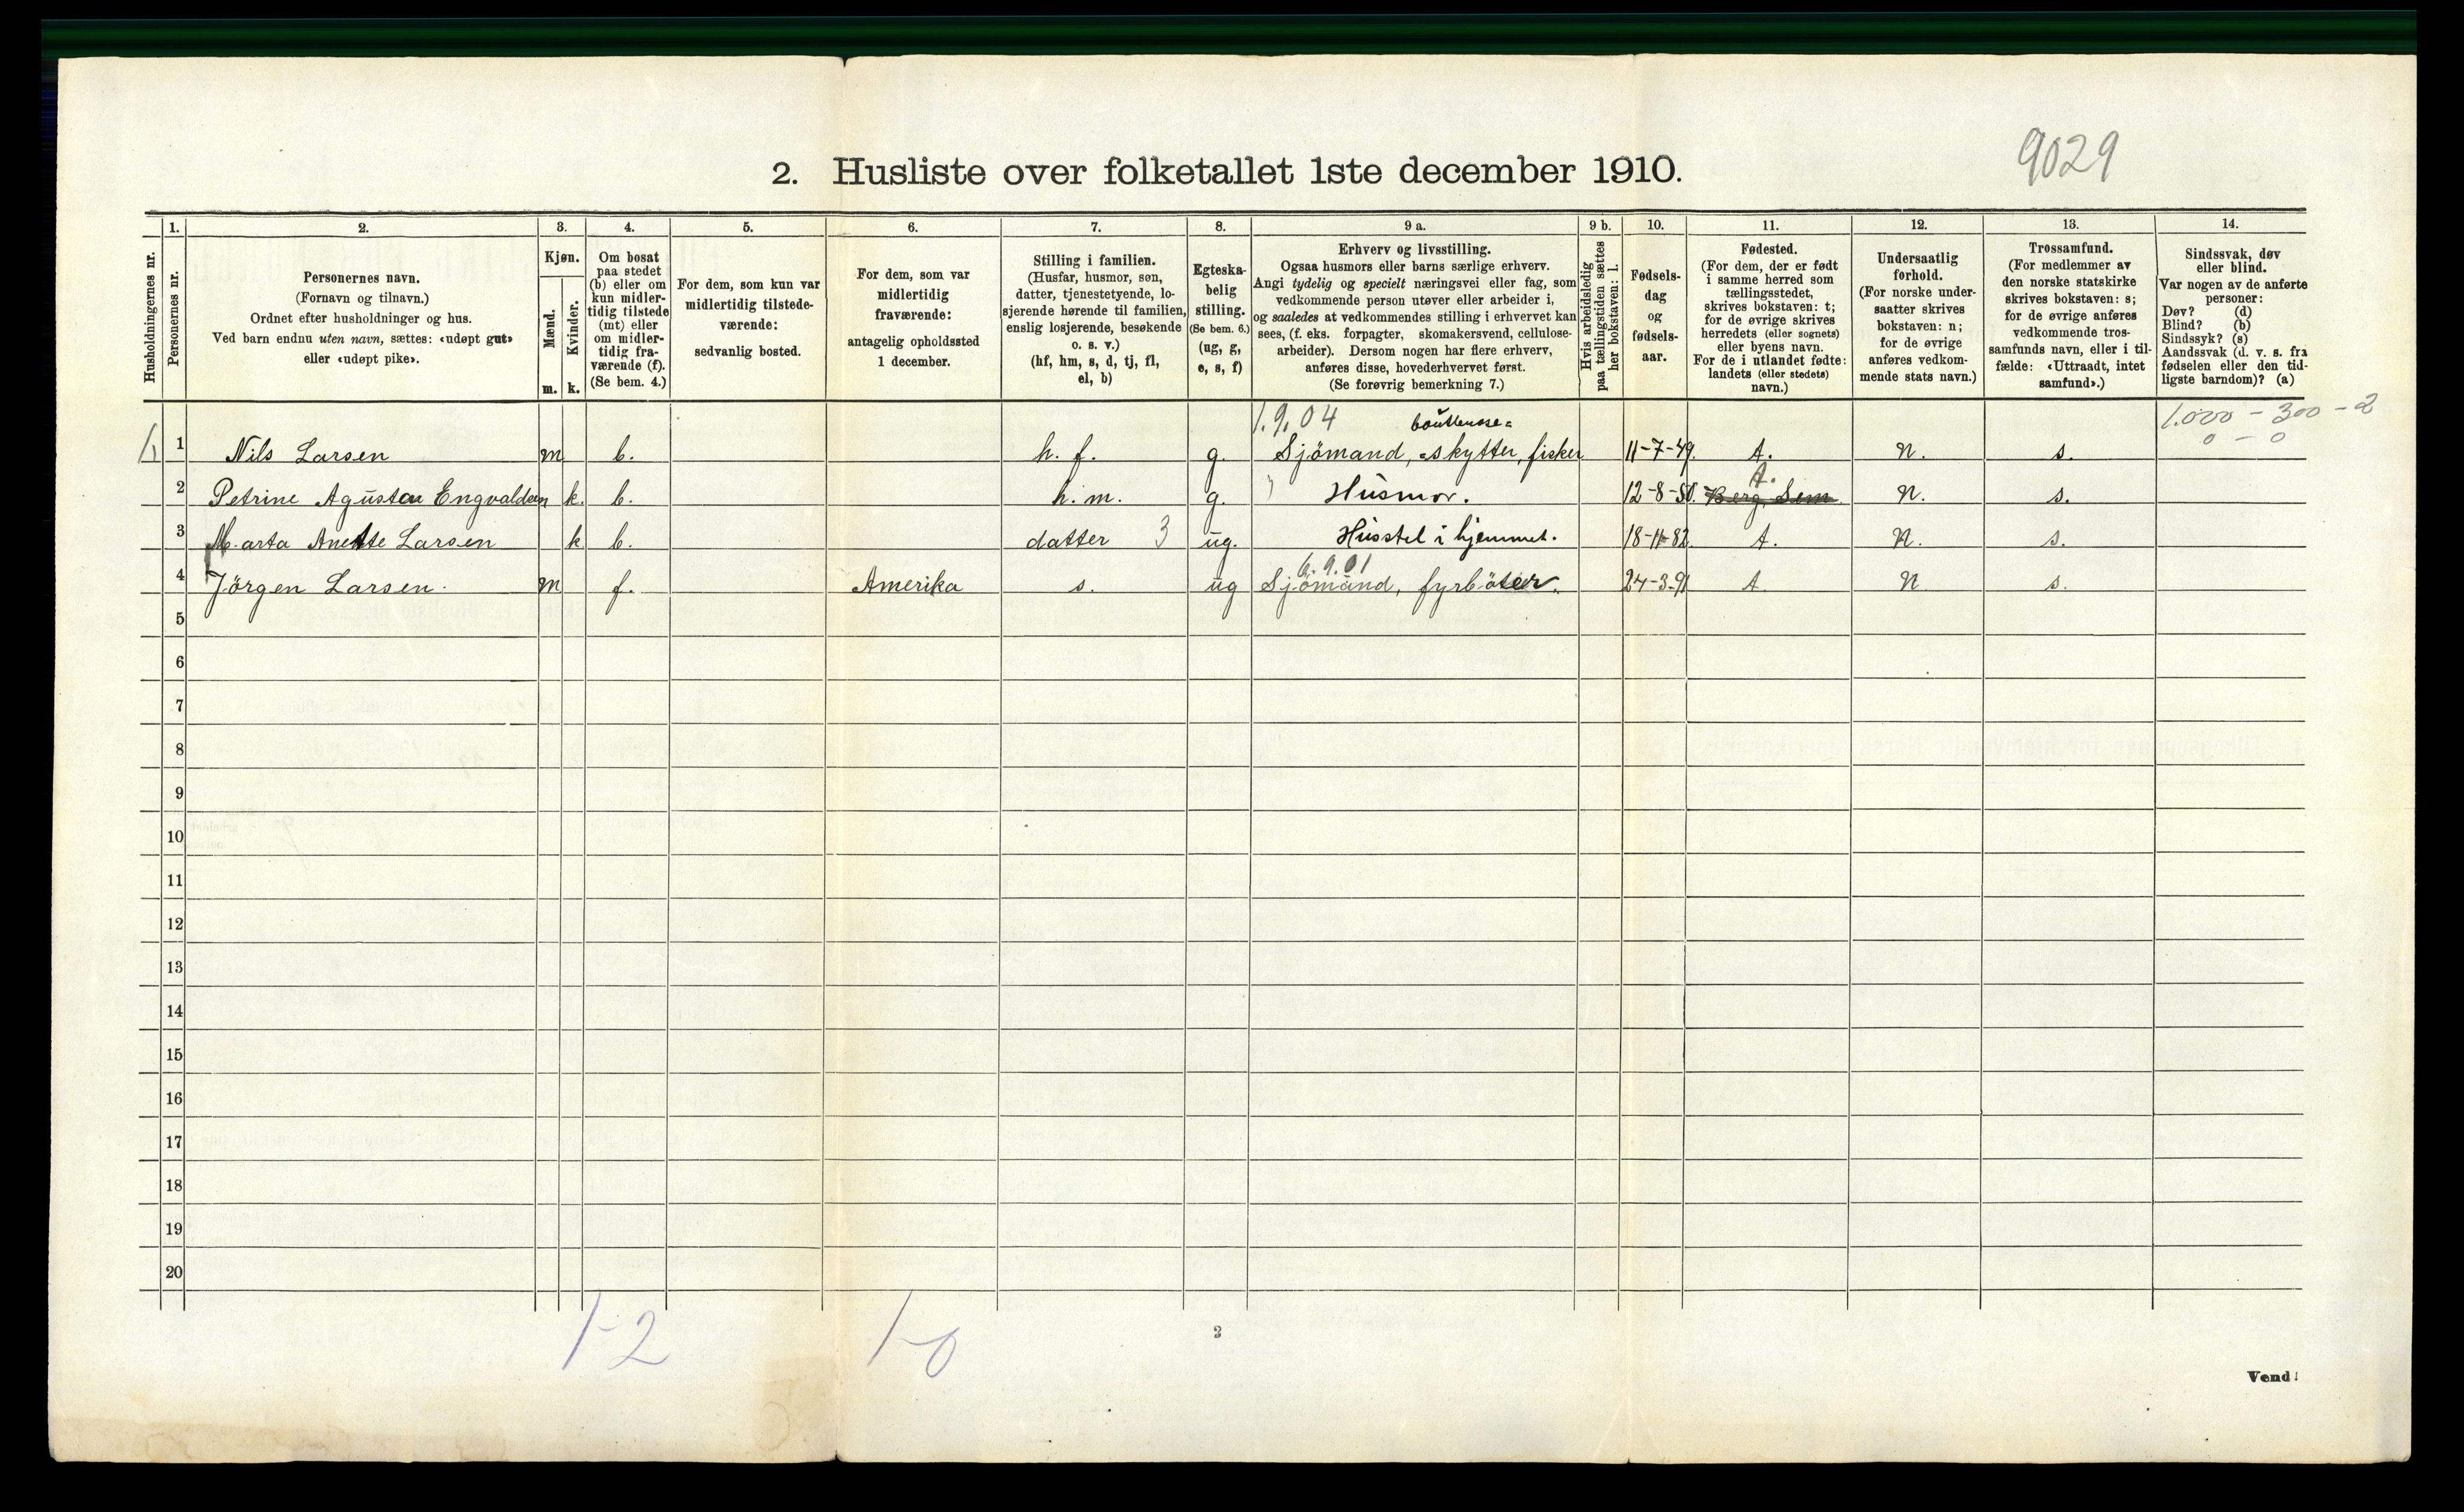 9029
2. Husliste over folketallet 1ste december 1910.
Husholdningernes nr.
1.
Personernes nr.
2.
Personernes navn.
(Fornavn og tilnavn.)
Ordnet efter husholdninger og hus.
Ved barn endnu uten navn, sættes: «udøpt gut»
eller «udøpt pike».
3.
Kjøn.
Mænd.
m.
Kvinder.
k.
4.
Om bosat
paa stedet
(b) eller om
kun midler-
tidig tilstede
(mt) eller
om midler-
tidig fra-
værende (f).
(Se bem. 4.)
5.
For dem, som kun var
midlertidig tilstede-
værende:
sedvanlig bosted.
6.
For dem, som var
midlertidig
fraværende:
antagelig opholdssted
1 december.
7.
Stilling i familien.
(Husfar, husmor, søn,
datter, tjenestetyende, lo-
sjerende hørende til familien,
enslig losjerende, besøkende
o. s. v.)
(hf, hm, s, d, tj, fl,
el, b)
8.
Egteska-
belig
stilling.
(Se bem. 6.)
(ug, g,
e, s, f)
9 a.
Erhverv og livsstilling.
Ogsaa husmors eller barns særlige erhverv.
Angi tydelig og specielt næringsvei eller fag, som
vedkommende person utøver eller arbeider i,
og saaledes at vedkommendes stilling i erhvervet kan
sees, (f. eks. forpagter, skomakersvend, cellulose-
arbeider). Dersom nogen har flere erhverv,
anføres disse, hovederhvervet først.
(Se forøvrig bemerkning 7.)
9 b.
Hvis arbeidsledig
paa tællingstiden sættes
her bokstaven: l.
10.
Fødsels-
dag
og
fødsels-
aar.
11.
Fødested.
(For dem, der er født
i samme herred som
tællingsstedet,
skrives bokstaven: t;
for de øvrige skrives
herredets (eller sognets)
eller byens navn.
For de i utlandet fødte:
landets (eller stedets)
navn.)
12.
Undersaatlig
forhold.
(For norske under-
saatter skrives
bokstaven: n;
for de øvrige
anføres vedkom-
mende stats navn.)
13.
Trossamfund.
(For medlemmer av
den norske statskirke
skrives bokstaven: s;
for de øvrige anføres
vedkommende tros-
samfunds navn, eller i til-
fælde: «Uttraadt, intet
samfund».)
14.
Sindssvak, døv
eller blind.
Var nogen av de anførte
personer:
Døv? (d)
Blind? (b)
Sindssyk? (s)
Aandssvak (d. v. s. fra
fødselen eller den tid-
ligste barndom)? (a)
1.9.04 1.000 - 300 - 2
0 - 0
1 Nils Larsen m b. h. f. g. Sjömand, skytter, fisker 11-7-49. n. s.
2 Petrine Agusta Engvaldsen k. b. h. m. g. Husmor. Berg, Sem n. s.
3 Marta Anette Larsen k b. datter 3 ug. Husstel i hjemmet. 18-11-82. n. s.
6.9.01
4 Jörgen Larsen. m f. Amerika s. ug Sjömand, fyrböter. 24-3-91 n s.
5
6
7
8
9
10
11
12
13
14
15
16
17
18
19
20
1-2 1-0
2
Vend!